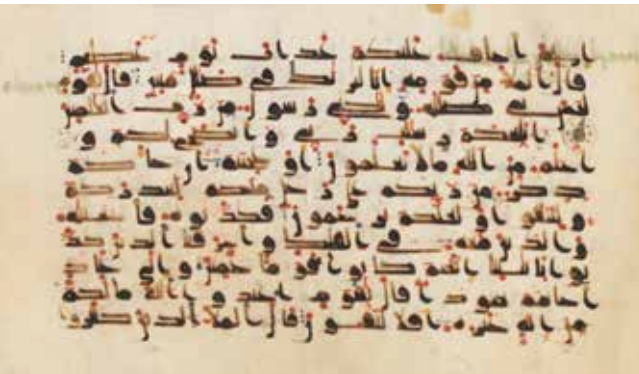 اني اخاف عليكم عذاب يوم عظيم
قال الملا من قومه انا لنريك في ضلل مبين قال يقوم
ليس بي ضللة ولكني رسول من رب العلمين
ابلغكم رسلت ربي وانصح لكم و
اعلم من الله ما لا تعلمون او عجبتم ان جاكم
ذكر من ربكم على رجل منكم لينذركم
ولتتقوا ولعلكم ترحمون فكذبوه فانجينه
والذين معه في الفلك واغرقنا الذين كذ
بوا بايتنا انهم كانوا قوما عمين والى عاد
اخاهم هودا قال يقوم اعبدوا الله ما لكم
من اله غيره افلا تتقون قال الملا الذين كفروا